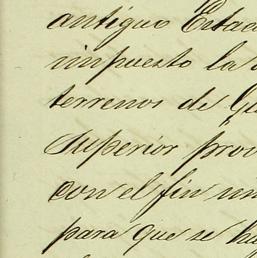 antiguo Estad
impuesto la
terrenos de
Superior prov
con el fin un
para que se ha